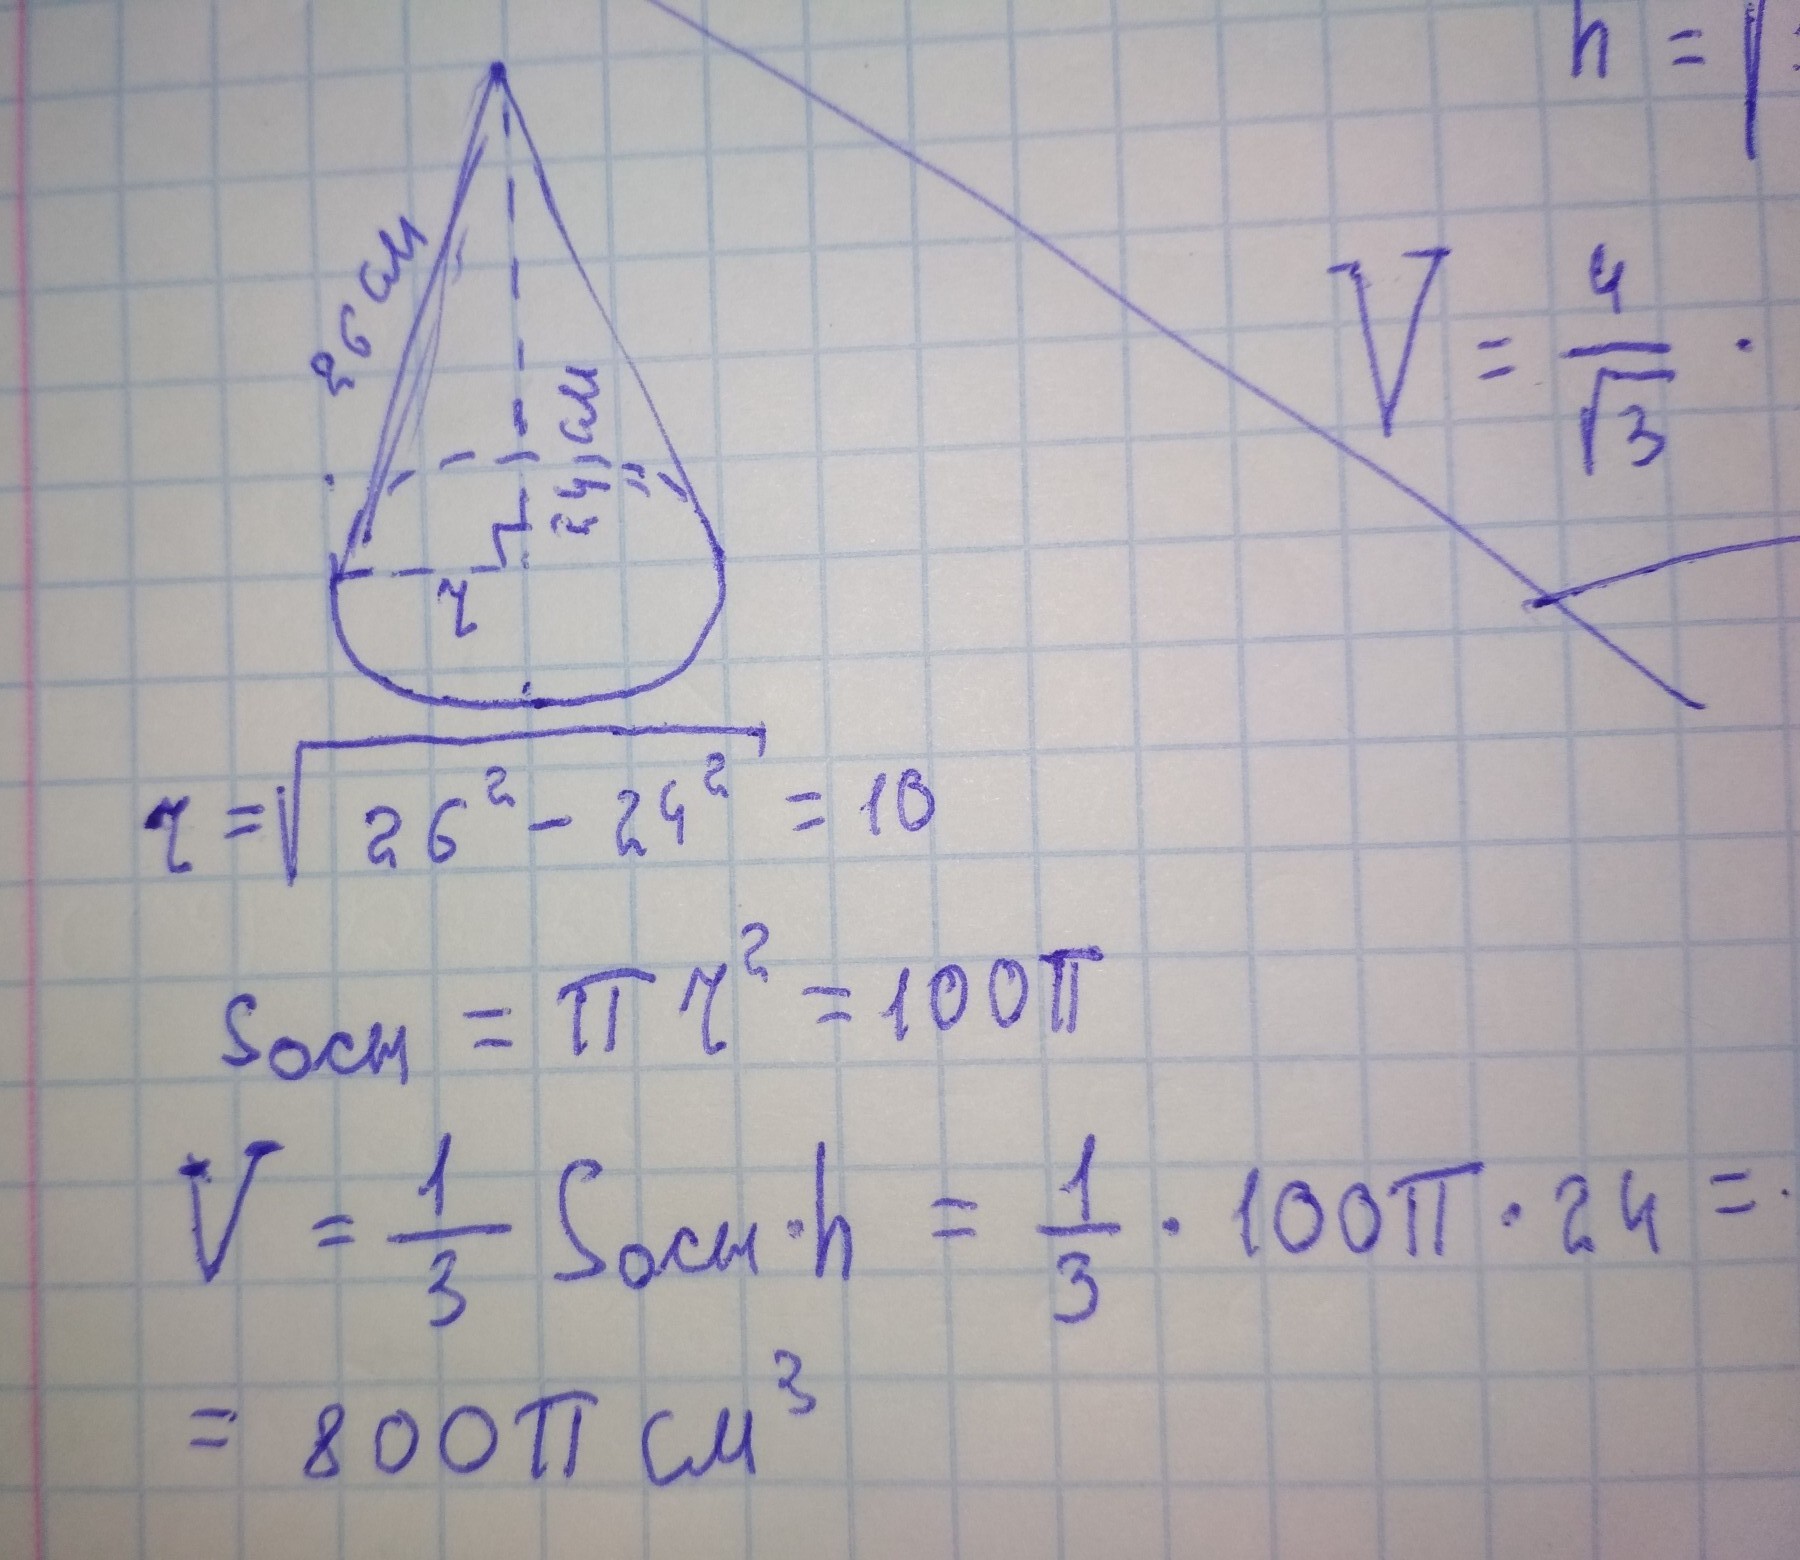 h = √
V = 4/√3 ·
26 см
24 см
r
r = √26² - 24² = 10
Sосн = π r² = 100π
V = 1/3 Sосн · h = 1/3 · 100π · 24 =
= 800π см³